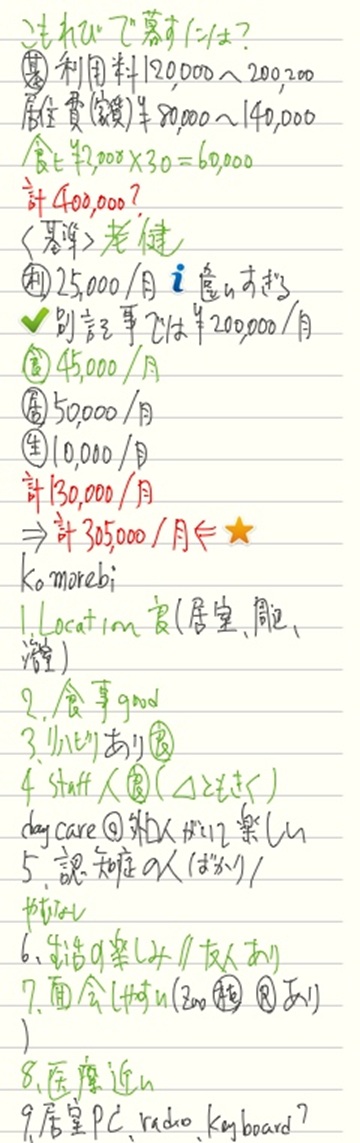 こもれびで暮すには?
基 利用料120,000~200,200
居住費(家賃)¥80,000~140,000
食ヒ ¥2,000×30=60,000
計400,000?
<基準>老健
利 25,000/月 違いすぎる
別記事では¥200,000/月
食 45,000/月
居 50,000/月
生 10,000/月
計130,000/月
⇒計305,000/月⇐
Komorebi
1.Location 良(居室、周辺、
浴室)
2.食事good
3.リハビリあり良
4 staff 人良(△ともきく)
day care 外人がいて楽しい
5.認知症の人ばかり/
やむなし
6.生活の楽しみ//友人あり
7.面会しやすい(Zoo あり
)
8.医療近い
9.居室PC、radio、keyboard?